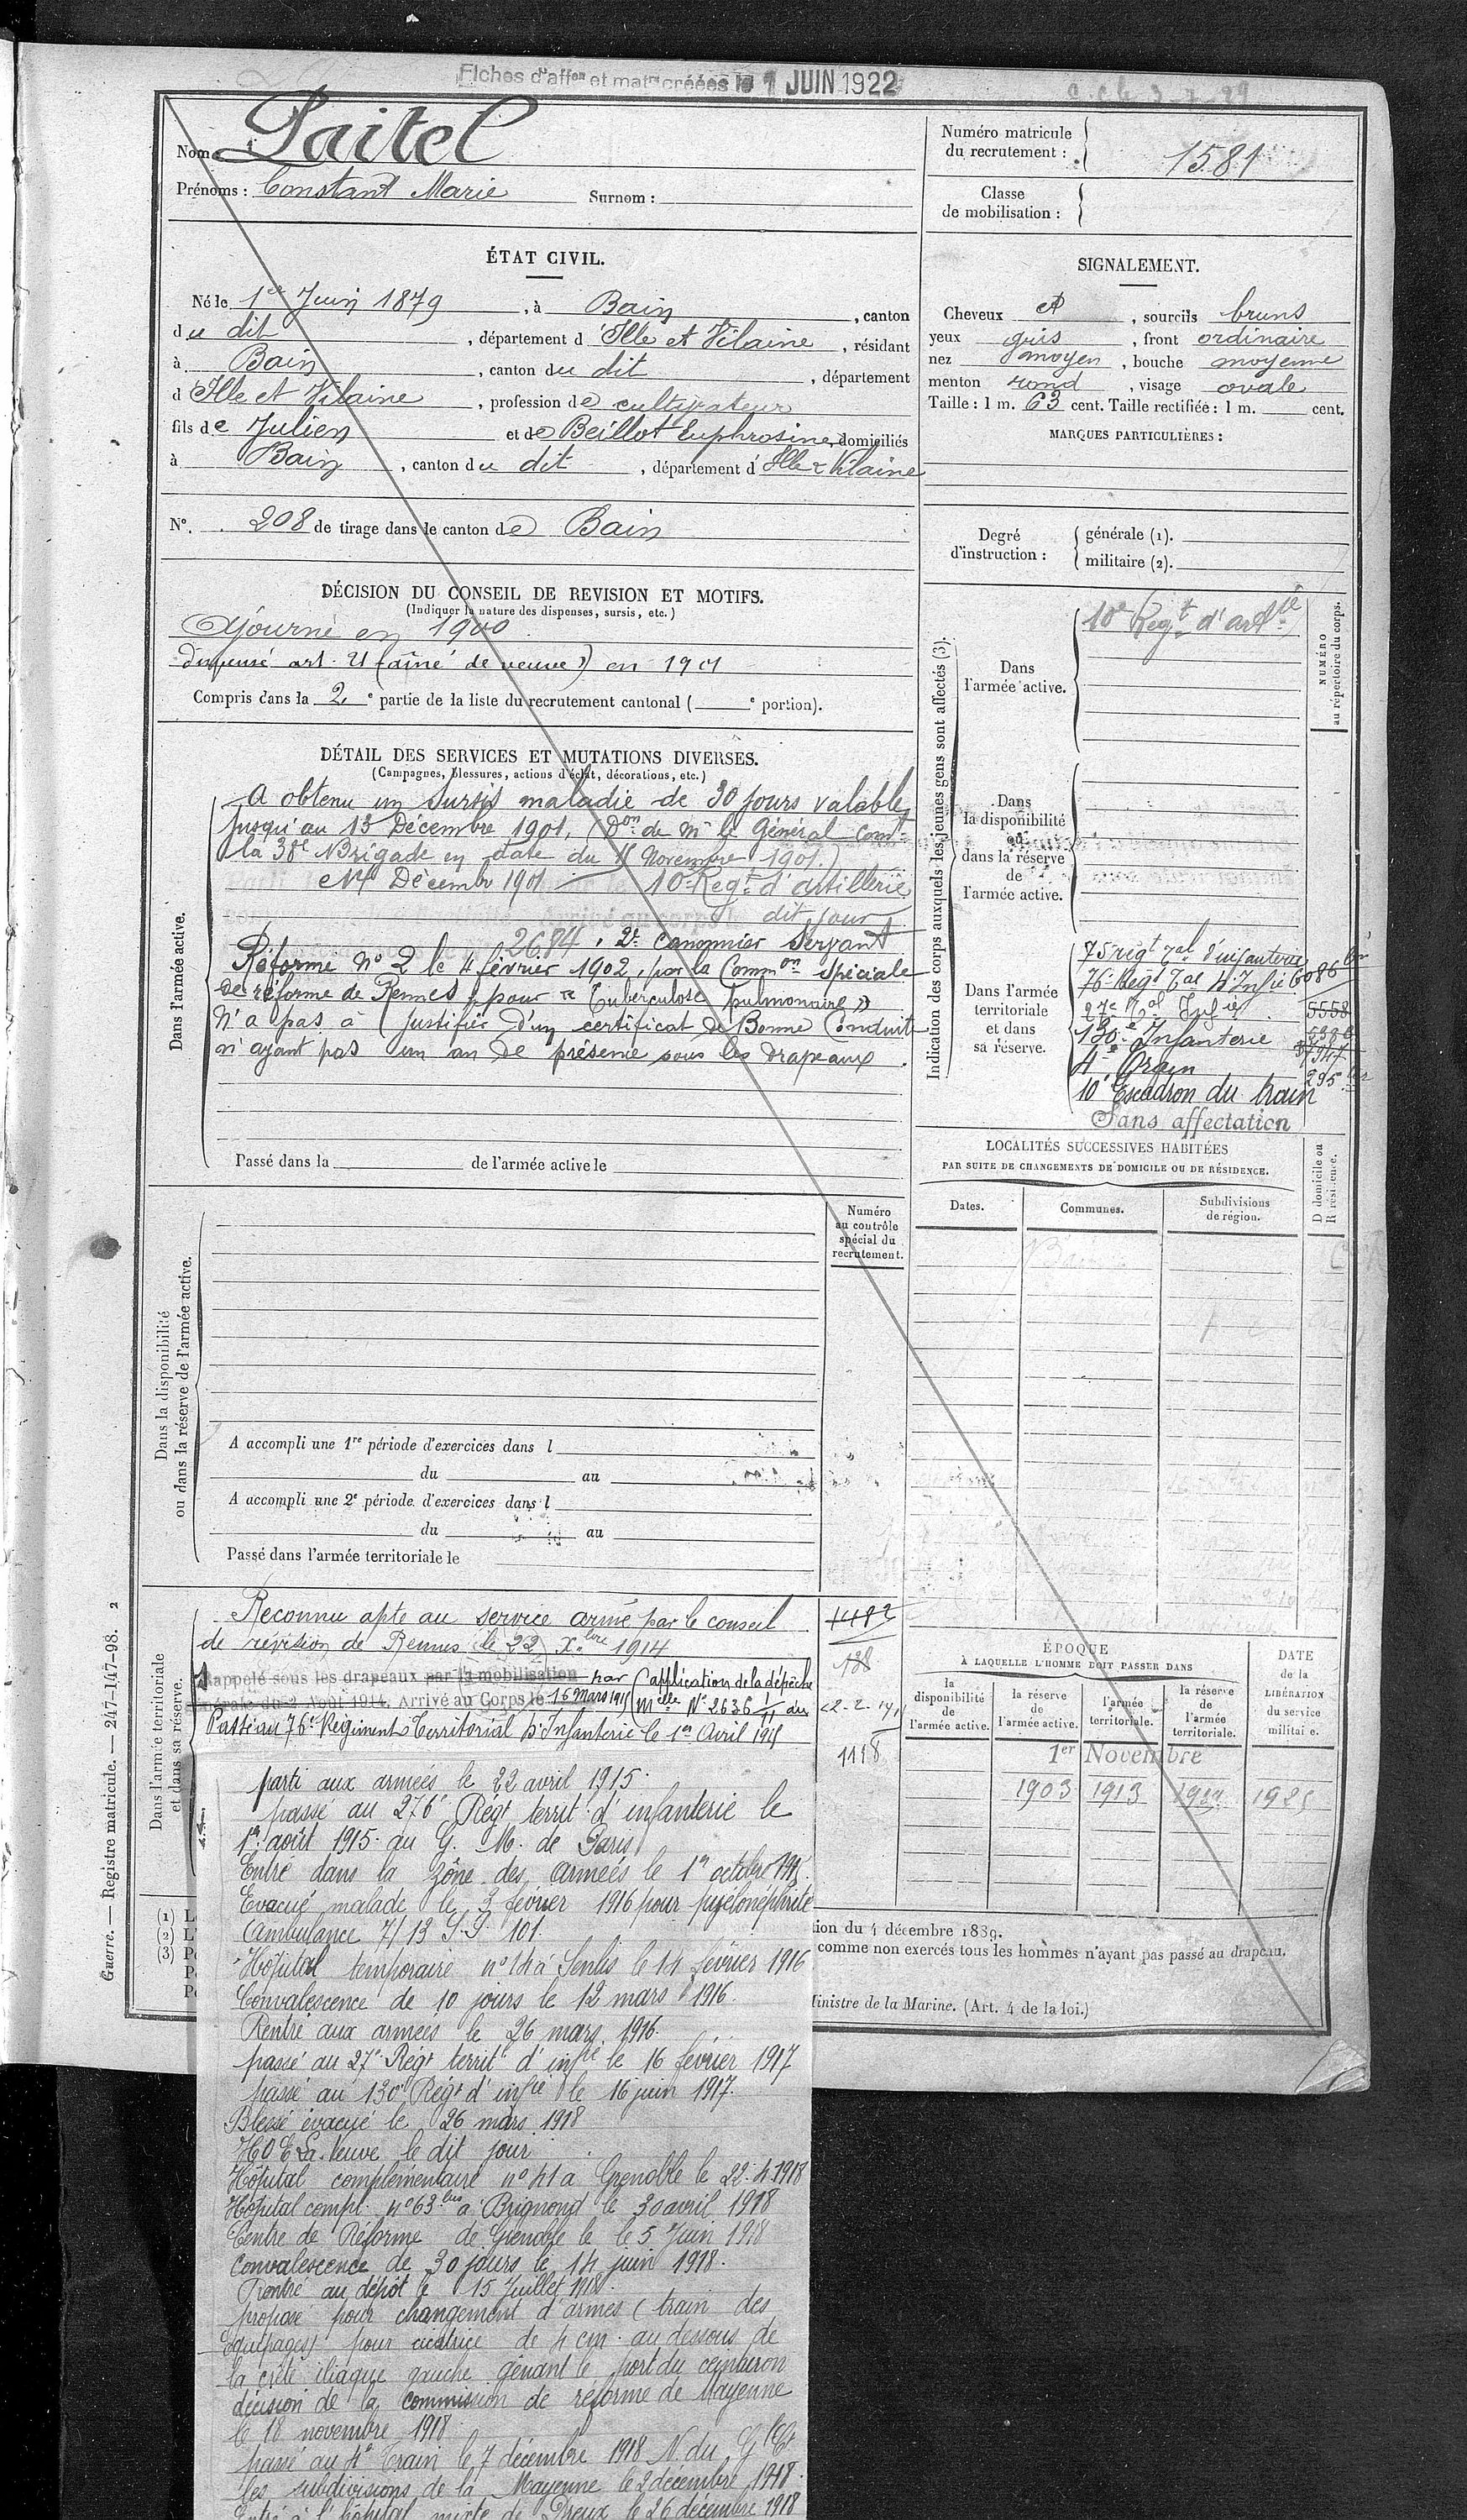 Fiches d'affon et matr créées le 1 JUIN 1922
Nom : Laitel
Prénoms : Constant Marie Surnom :
Numéro matricule du recrutement : 1581
Classe de mobilisation :
ÉTAT CIVIL.
Né le 1er Juin 1879, à Bain, canton
du dit, département d'Ille et Vilaine, résidant
à Bain, canton du dit, département
d Ille et Vilaine, profession de cultivateur
fils de Julien et de Beillot Euphrosine, domiciliés
à Bain, canton du dit, département d'Ille & Vilaine
N°. 208 de tirage dans le canton de Bain
SIGNALEMENT.
Cheveux , sourcils bruns
yeux gris, front ordinaire
nez moyen, bouche moyenne
menton rond, visage ovale
Taille : 1 m. 63 cent. Taille rectifiée : 1 m. cent.
MARQUES PARTICULIÈRES :
Degré d'instruction : générale (1).
militaire (2).
DÉCISION DU CONSEIL DE REVISION ET MOTIFS.
(Indiquer la nature des dispenses, sursis, etc.)
Ajourné en 1900
dispensé art. 21 (aîné de veuve) en 1901
Compris dans la 2e partie de la liste du recrutement cantonal ( e portion).
DÉTAIL DES SERVICES ET MUTATIONS DIVERSES.
(Campagnes, blessures, actions d'éclat, décorations, etc.)
Dans l'armée active.
A obtenu un sursis maladie de 30 jours valable
jusqu'au 13 Décembre 1901, (Don de Mr le Général comt
la 38e Brigade en date du Novembre 1901.)
Décembre 1901 10e Regt d'artillerie
dit jour
2684, 2e canonnier servant
Réformé N° 2 le 4 février 1902, par la Common spéciale
de réforme de Rennes, pour "Tuberculose pulmonaire"
N'a pas à justifier d'un certificat de Bonne Conduite
n'ayant pas un an de présence sous les drapeaux.
Passé dans la de l'armée active le
Indication des corps auxquels les jeunes gens sont affectés (3).
NUMÉRO au répertoire du corps.
Dans l'armée active.
10e Regt d'artie
Dans la disponibilité ou dans la réserve de l'armée active.
Dans l'armée territoriale et dans sa réserve.
75 régt Tal d'infanterie
76e Regt Tal d'Infie 6086
27e Tal Infie 5558
130e Infanterie
4e Train
10e Escadron du train
295
Sans affectation
LOCALITÉS SUCCESSIVES HABITÉES
PAR SUITE DE CHANGEMENTS DE DOMICILE OU DE RÉSIDENCE.
Dates. Communes. Subdivisions de région. D domicile ou R résidence.
Dans la disponibilité ou dans la réserve de l'armée active.
Numéro au contrôle spécial du recrutement.
A accompli une 1re période d'exercices dans l
du au
A accompli une 2e période d'exercices dans l
du au
Passé dans l'armée territoriale le
Dans l'armée territoriale et dans sa réserve.
Reconnu apte au service armé par le conseil
de révision de Rennes le 22 Xbre 1914
Rappelé sous les drapeaux par la mobilisation par (application de la dépêche
générale du 2 Août 1914. Arrivé au Corps le 16 Mars 1915 (Mlle N° 2636 1/11 du
Passé au 76e Régiment Territorial d'Infanterie le 1er Avril 1915
1482
138
22-2-14
1118
parti aux armées le 22 avril 1915.
passé au 276e Régt territ d'infanterie le
1er août 1915. au G. M. de Paris
Entré dans la zône des armées le 1er octobre 1915.
Evacué malade le 3 février 1916 pour pyélonéphrite
Ambulance 7/13 S.P. 101.
Hôpital temporaire n° 14 à Senlis le 14 février 1916
Convalescence de 10 jours le 12 mars 1916.
Rentré aux armées le 26 mars 1916.
passé au 27e Régt territl d'infie le 16 février 1917
passé au 130e Régt d'infie le 16 juin 1917.
Blessé évacué le 26 mars 1918
H O E La Veuve le dit jour
Hôpital complémentaire n° 41 à Grenoble le 22.4.1918
Hôpital compl. n° 63 bis à Brignoud le 30 avril 1918
Centre de Réforme de Grenoble le le 5 Juin 1918
Convalescence de 30 jours le 14 juin 1918.
Rentré au dépôt le 15 Juillet 1918.
proposé pour changement d'armes (train des
Equipages) pour cicatrice de 4 cm. au dessous de
la crête iliaque gauche gênant le port du ceinturon
décision de la commission de réforme de Mayenne
le 18 novembre 1918.
passé au 4e Train le 7 décembre 1918 N. du Gl Ct
les subdivisions de la Mayenne le 2 décembre 1918.
Entré à l'hôpital mixte de Dreux le 26 décembre 1918
ÉPOQUE
À LAQUELLE L'HOMME DOIT PASSER DANS
la disponibilité de l'armée active. la réserve de l'armée active. l'armée territoriale. la réserve de l'armée territoriale.
DATE de la LIBÉRATION du service militaire.
1er Novembre
1903 1913 1919 1925
tion du 4 décembre 1889.
comme non exercés tous les hommes n'ayant pas passé au drapeau.
Ministre de la Marine. (Art. 4 de la loi.)
Guerre. — Registre matricule. — 247-147-98. 2
(1) L
(2) L'
(3) Po